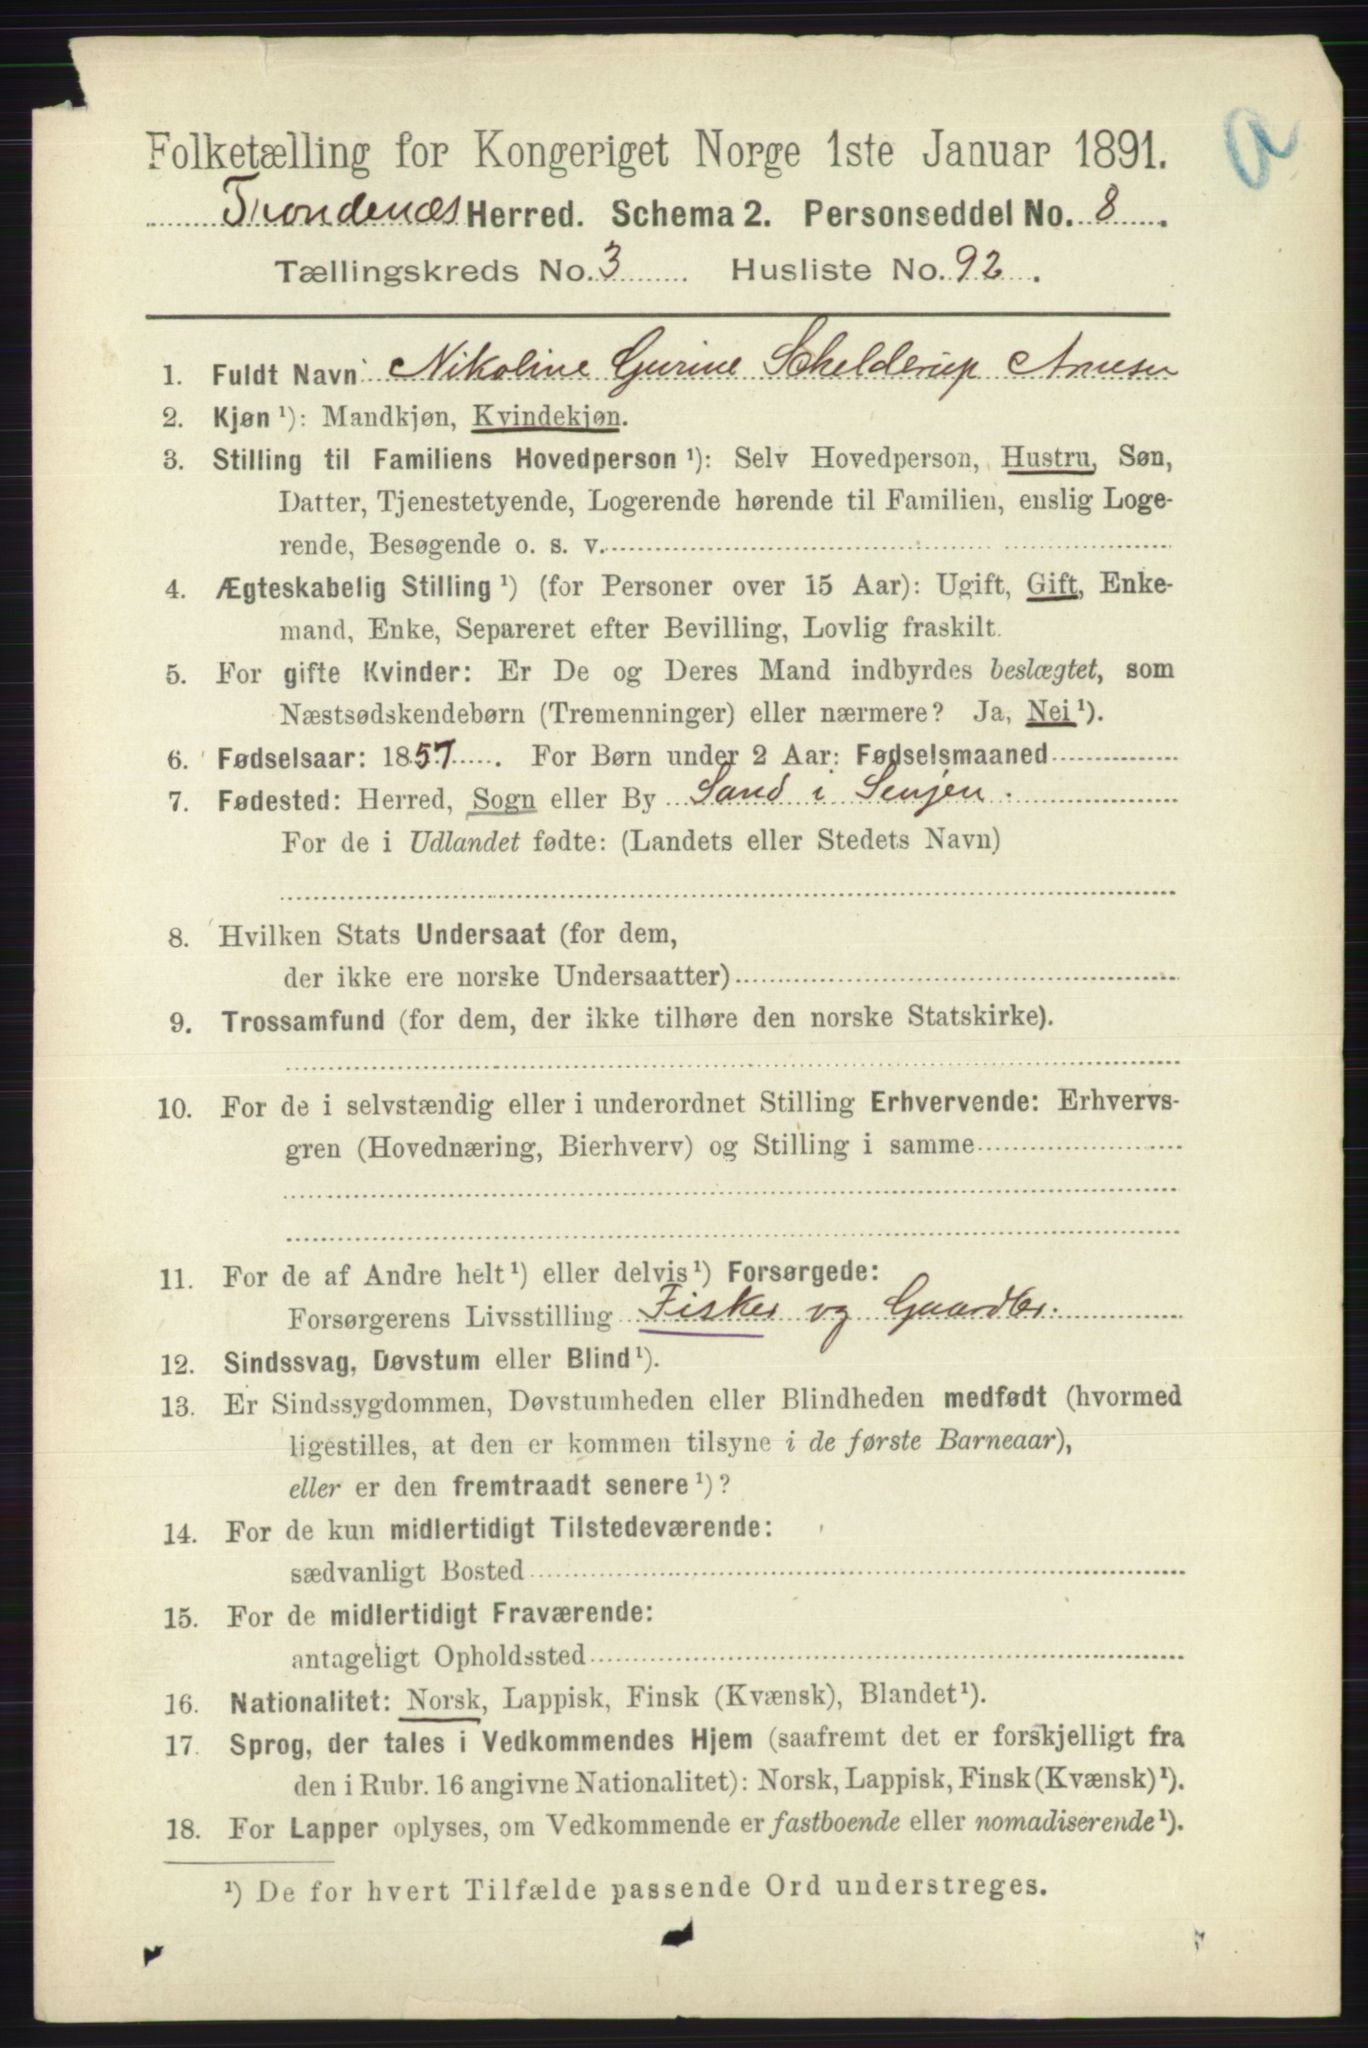 Folketælling for Kongeriget Norge 1ste Januar 1891.
a
Trondenæs Herred. Schema 2. Personseddel No. 8.
Tællingskreds No. 3 Husliste No. 92.
1. Fuldt Navn Nikoline Gurine Schelderup Arnesen
2. Kjøn ¹): Mandkjøn, Kvindekjøn.
3. Stilling til Familiens Hovedperson ¹): Selv Hovedperson, Hustru, Søn,
Datter, Tjenestetyende, Logerende hørende til Familien, enslig Loge-
rende, Besøgende o. s. v.
4. Ægteskabelig Stilling ¹) (for Personer over 15 Aar): Ugift, Gift, Enke-
mand, Enke, Separeret efter Bevilling, Lovlig fraskilt.
5. For gifte Kvinder: Er De og Deres Mand indbyrdes beslægtet, som
Næstsødskendebørn (Tremenninger) eller nærmere? Ja, Nei ¹).
6. Fødselsaar: 1857. For Børn under 2 Aar: Fødselsmaaned
7. Fødested: Herred, Sogn eller By Sand i Senjen.
For de i Udlandet fødte: (Landets eller Stedets Navn)
8. Hvilken Stats Undersaat (for dem,
der ikke ere norske Undersaatter)
9. Trossamfund (for dem, der ikke tilhøre den norske Statskirke).
10. For de i selvstændig eller i underordnet Stilling Erhvervende: Erhvervs-
gren (Hovednæring, Bierhverv) og Stilling i samme
11. For de af Andre helt ¹) eller delvis ¹) Forsørgede:
Forsørgerens Livsstilling Fisker og Gaardbr.
12. Sindssvag, Døvstum eller Blind ¹).
13. Er Sindssygdommen, Døvstumheden eller Blindheden medfødt (hvormed
ligestilles, at den er kommen tilsyne i de første Barneaar),
eller er den fremtraadt senere ¹)?
14. For de kun midlertidigt Tilstedeværende:
sædvanligt Bosted
15. For de midlertidigt Fraværende:
antageligt Opholdssted
16. Nationalitet: Norsk, Lappisk, Finsk (Kvænsk), Blandet ¹).
17. Sprog, der tales i Vedkommendes Hjem (saafremt det er forskjelligt fra
den i Rubr. 16 angivne Nationalitet): Norsk, Lappisk, Finsk (Kvænsk) ¹).
18. For Lapper oplyses, om Vedkommende er fastboende eller nomadiserende ¹).
¹) De for hvert Tilfælde passende Ord understreges.